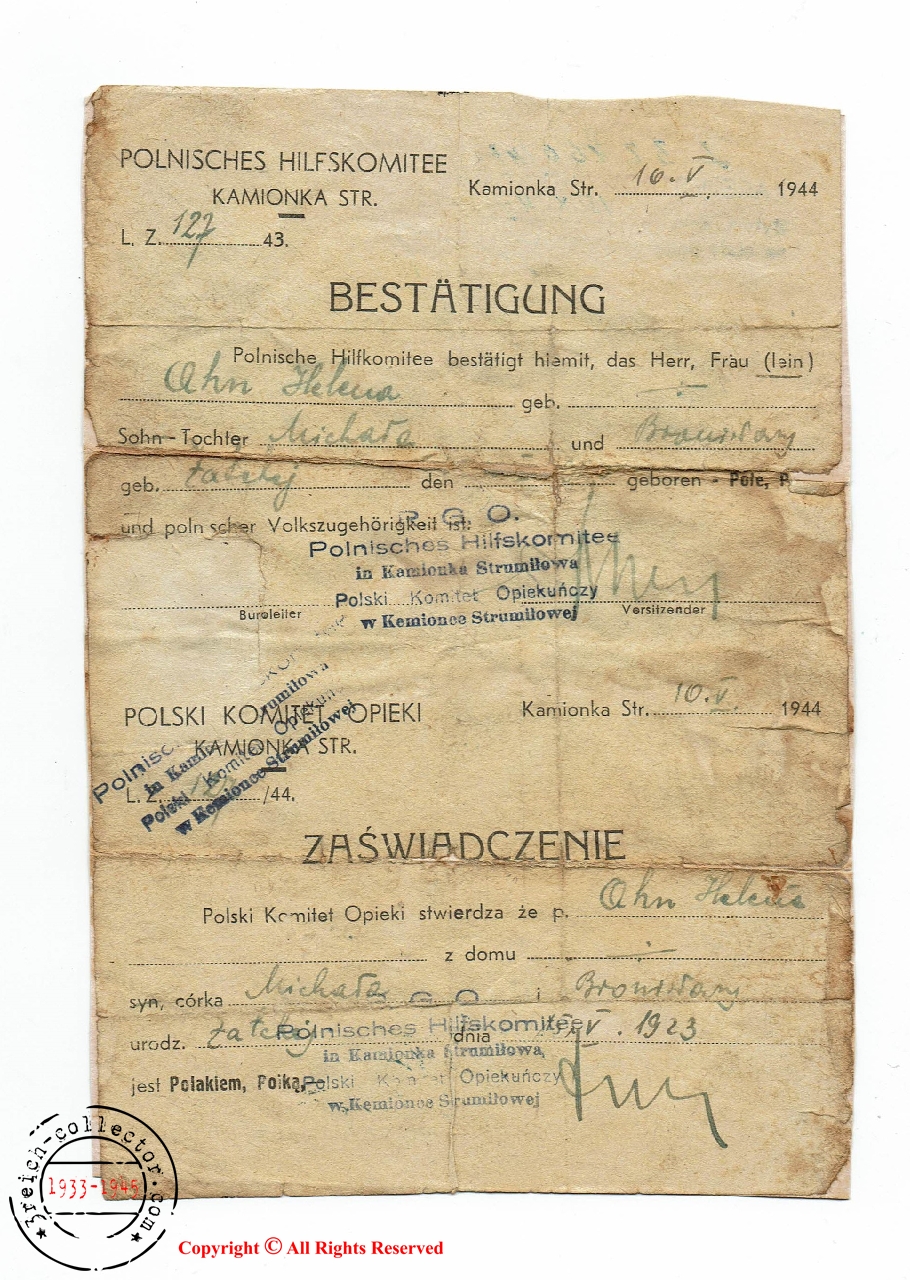 POLNISCHES HILFSKOMITEE
KAMIONKA STR.
Kamionka Str. 10. V. 1944
L. Z. 127 43.
BESTÄTIGUNG
Polnische Hilfkomitee bestätigt hiemit, das Herr, Frau (lein)
Ahn Helena geb. —
Sohn-Tochter Michała und Bronisławy
geb. den geboren - Pole, P
und poln scher Volkszugehörigkeit ist.
R. G. O.
Polnisches Hilfskomitee
in Kamionka Strumiłowa
Polski Komitet Opiekuńczy
w Kemionce Strumiłowej
Büroleiter Versitzender
POLSKI KOMITET OPIEKI
KAMIONKA STR.
Kamionka Str. 10. V. 1944
L. Z. 127 /44.
Polnisc
in Kamionka Strumiłowa
Polski Komitet Opiekuń
w Kemionce Strumiłowej
ZAŚWIADCZENIE
Polski Komitet Opieki stwierdza że p. Ahn Helena
z domu —
syn, córka Michała i Bronisławy
urodz. dnia V. 1923
jest Polakiem, Polką,
R G O
Polnisches Hilfskomitee
in Kamionka Strumiłowa,
Polski Komitet Opiekuńczy
w Kemionce Strumiłowej
3reich-collector.com
1933-1945
Copyright © All Rights Reserved